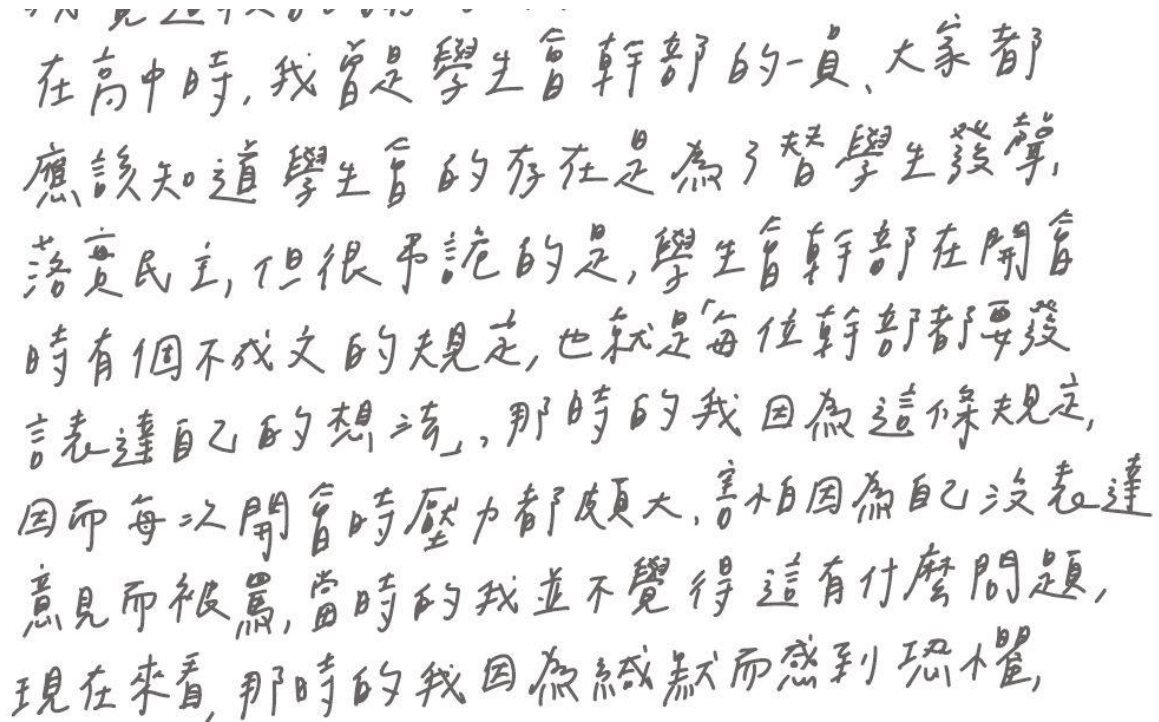 在高中時,我曾是學生會幹部的一員、大家都
應該知道學生會的存在是為了替學生發聲,
落實民主,但很弔詭的是,學生會幹部在開會
時有個不成文的規定,也就是「每位幹部都要發
言表達自己的想法」,那時的我因為這條規定,
因而每次開會時壓力都頗大、害怕因為自己沒表達
意見而被罵,當時的我並不覺得這有什麼問題,
現在來看,那時的我因為緘默而感到恐懼,